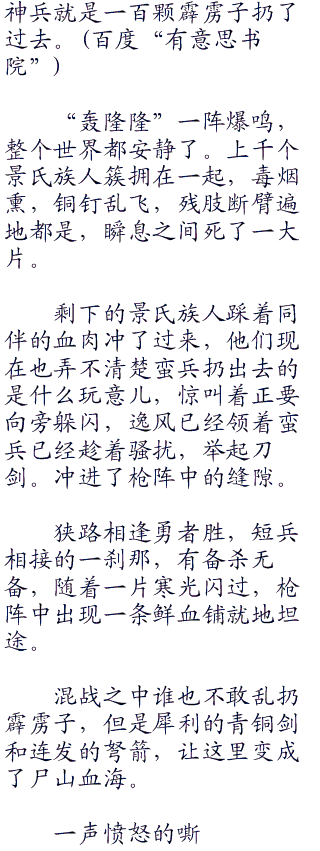 神兵就是一百颗霹雳子扔了
过去。(百度“有意思书
院”)
“轰隆隆”一阵爆鸣，
整个世界都安静了。上千个
景氏族人簇拥在一起，毒烟
熏，铜钉乱飞，残肢断臂遍
地都是，瞬息之间死了一大
片。
剩下的景氏族人踩着同
伴的血肉冲了过来，他们现
在也弄不清楚蛮兵扔出去的
是什么玩意儿，惊叫着正要
向旁躲闪，逸风已经领着蛮
兵已经趁着骚扰，举起刀
剑。冲进了枪阵中的缝隙。
狭路相逢勇者胜，短兵
相接的一刹那，有备杀无
备，随着一片寒光闪过，枪
阵中出现一条鲜血铺就地坦
途。
混战之中谁也不敢乱扔
霹雳子，但是犀利的青铜剑
和连发的弩箭，让这里变成
了尸山血海。
一声愤怒的嘶